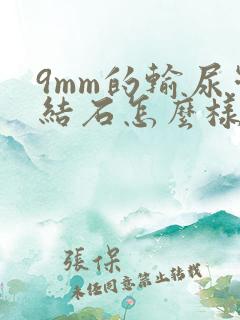 9mm的輸尿
結石怎麼樣
張保
未经同意禁止转载